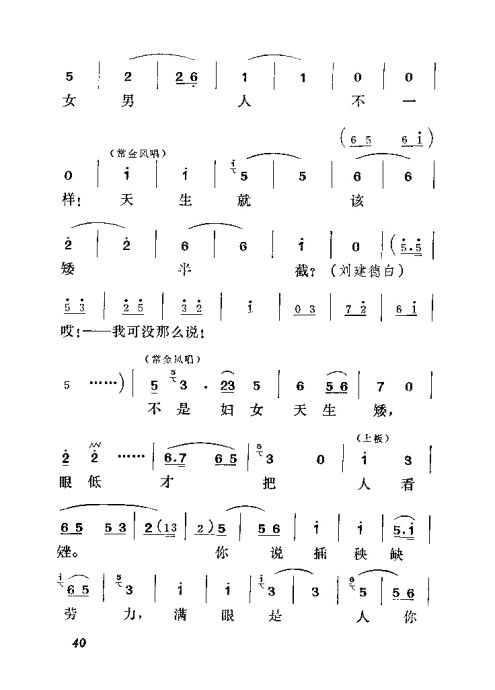 5 | 2 | 2 6 | 1 | 1 | 0 | 0 |
女 男 人 不 一
(6 5 6 i |
0 | i | i | 5 | 5 | 6 | 6 |
(常金凤唱)
样! 天 生 就 该
2 | 2 | 6 | 6 | i | 0 | (5.5 |
矮 半 截? (刘建德白)
5 3 | 2 5 | 3 2 | i | 0 3 | 7 2 | 6 i |
哎!——我可没那么说!
(常金凤唱)
5 ……) | 5 3 . 23 5 | 6 5 6 | 7 0 |
不 是 妇 女 天 生 矮,
(上板)
2 2 …… | 6.7 6 5 | 3 0 | i 3 |
眼 低 才 把 人 看
6 5 5 3 | 2 (13 | 2) 5 | 5 6 | i | i | 5.i |
矬。 你 说 插 秧 缺
6 5 | 3 | i | i | 3 | 3 | 5 | 5 6 |
劳 力, 满 眼 是 人 你
40